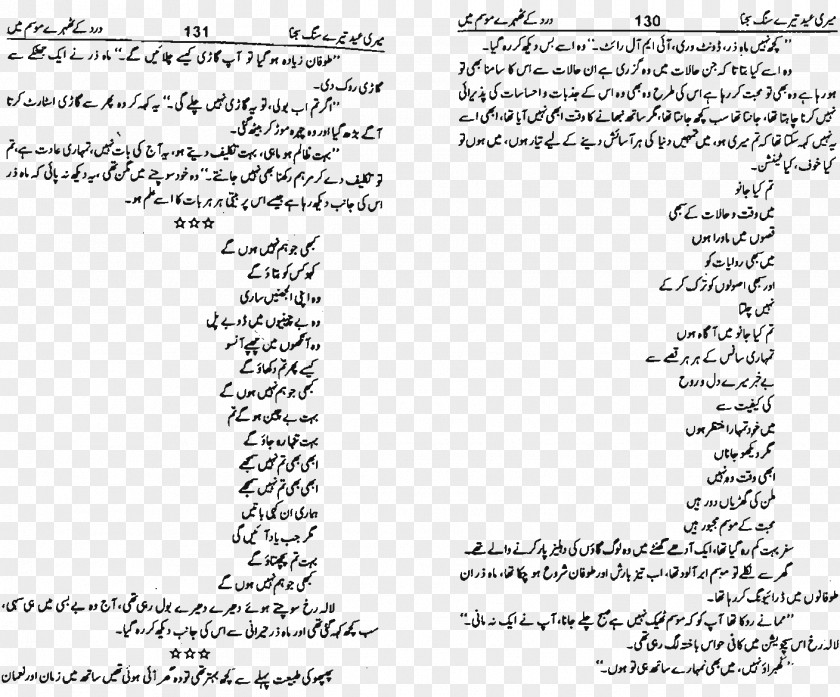 میری عید تیرے سنگ سجنا 130 درد کے ٹھہرے موسم میں
"کچھ نہیں ماہ ذر، ڈونٹ وری، آئی ایم آل رائٹ۔" وہ اسے بس دیکھ کر رہ گیا۔
وہ اسے کیا بتاتا کہ جن حالات میں وہ گزری ہے ان حالات سے اس کا سامنا بھی تو
ہو رہا ہے وہ بھی تو محبت کر رہا ہے اس کی طرح وہ بھی وہ اس کے جذبات و احساسات کی پذیرائی
نہیں کرنا چاہتا تھا، جانتا تھا سب کچھ جانتا تھا، مگر ساتھ نبھانے کا وقت ابھی نہیں آیا تھا، ابھی اسے
یہ نہیں کہہ سکتا تھا کہ تم میری ہو، میں تمہیں دنیا کی ہر آسائش دینے کے لیے تیار ہوں، میں ہوں تو
کیا خوف، کیا ٹینشن۔
تم کیا جانو
میں وقت و حالات کے سبھی
قصوں میں ماورا ہوں
میں سبھی روایات کو
اور سبھی اصولوں کو ترک کر کے
نہیں چلتا
تم کیا جانو میں آگاہ ہوں
تمہاری سانس کے ہر ہر قصے سے
بے خبر میرے دل و روح
کی کیفیت سے
میں خود تمہارا منتظر ہوں
مگر دیکھو جاناں
ابھی وقت وہ نہیں
ملن کی گھڑیاں دور ہیں
محبت کے موسم مجبور ہیں
سفر بہت کم رہ گیا تھا، ایک آدھے گھنٹے میں وہ لوگ گاؤں کی دہلیز پار کرنے والے تھے۔
گھر سے نکلے تو موسم ابر آلود تھا، اب تیز بارش اور طوفان شروع ہو چکا تھا، ماہ ذر ان
طوفانوں میں ڈرائیونگ کر رہا تھا۔
"مما نے روکا تھا آپ کو کہ موسم ٹھیک نہیں ہے صبح چلے جانا، آپ نے ایک نہ مانی۔"
لالہ رخ اس سچویشن میں کافی حواس باختہ لگ رہی تھی۔
"گھبراؤ نہیں، میں بھی تمہارے ساتھ ہی تو ہوں۔"
میری عید تیرے سنگ سجنا 131 درد کے ٹھہرے موسم میں
"طوفان زیادہ ہو گیا تو آپ گاڑی کیسے چلائیں گے۔" ماہ ذر نے ایک جھٹکے سے
گاڑی روک دی۔
"اگر تم اب بولی، تو یہ گاڑی نہیں چلے گی۔" یہ کہہ کر وہ پھر سے گاڑی اسٹارٹ کرتا
آگے بڑھ گیا اور وہ چہرہ موڑ کر بیٹھ گئی۔
"بہت ظالم ہو ماہی، بہت تکلیف دیتے ہو، یہ آج کی بات نہیں، تمہاری عادت ہے، تم
تو تکلیف دے کر مرہم رکھنا بھی نہیں جانتے۔" وہ خود سوچنے میں مگن تھی، یہ دیکھ نہ پائی کہ ماہ ذر
اس کی جانب دیکھ رہا ہے جیسے اس پر بیتی ہر ہر بات کا اسے علم ہو۔
☆☆☆
کبھی جو ہم نہیں ہوں گے
کہو کس کو بتاؤ گے
وہ اپنی الجھنیں ساری
وہ بے چینیوں میں ڈوبے پل
وہ آنکھوں میں چھپے آنسو
کیسے پھر تم دکھاؤ گے
کبھی جو ہم نہیں ہوں گے
بہت بے چین ہو گے تم
بہت تنہا رہ جاؤ گے
ابھی بھی تم نہیں سمجھے
ابھی بھی تم نہیں سمجھے
ہماری ان کہی باتیں
مگر جب یاد آئیں گی
بہت تم پچھتاؤ گے
کبھی جو ہم نہیں ہوں گے
لالہ رخ سوچتے ہوئے دھیرے دھیرے بول رہی تھی، آج وہ بے بسی میں ہی سہی،
سب کچھ کہہ گئی تھی اور ماہ ذر حیرانی سے اس کی جانب دیکھ کر رہ گیا۔
☆☆☆
پھپھو کی طبیعت پہلے سے کچھ بہتر تھی تو وہ گھر آئی ہوئی تھیں ساتھ میں زمان اور نعمان